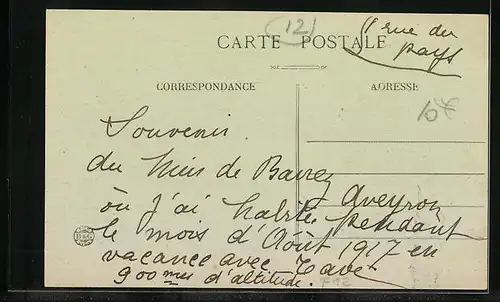 12
1 rue du
pays
CARTE POSTALE
CORRESPONDANCE
ADRESSE
10f
Souvenir
du Mur de Barrez
Aveyron
où j'ai habité pendant
le mois d'Août 1917 en
vacance avec
900 mes d'altitude.
F12